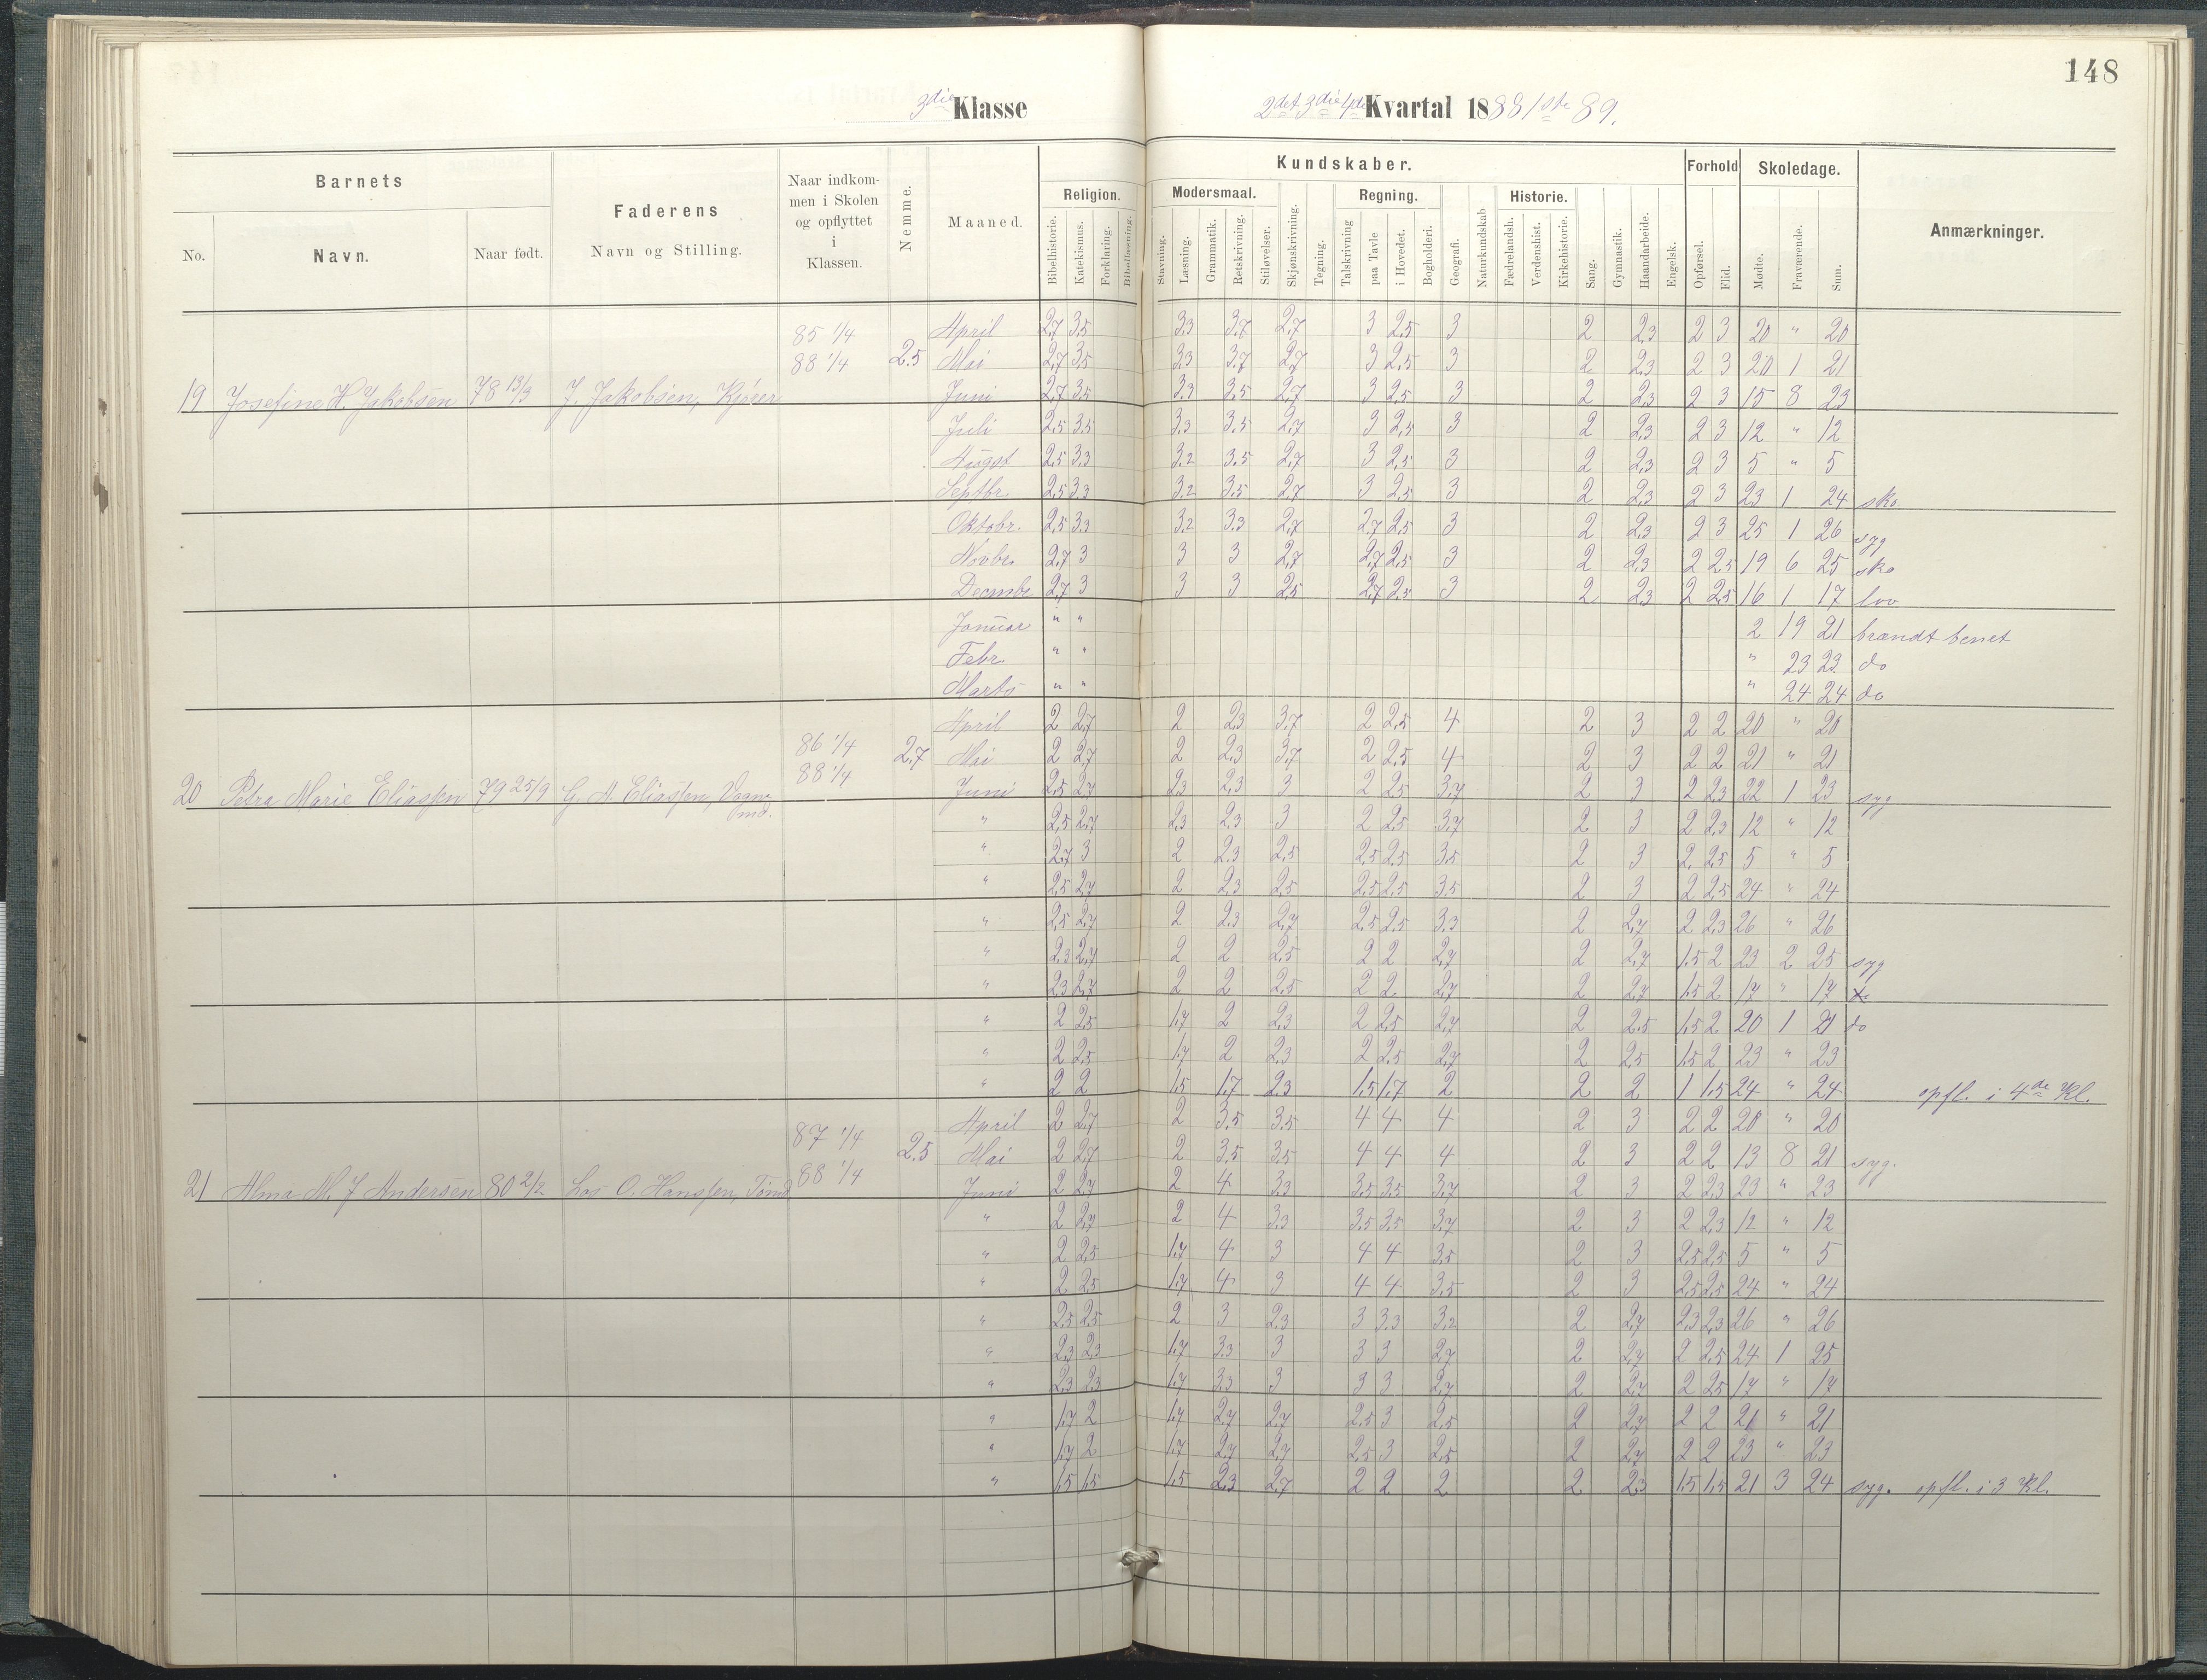 148
3die Klasse
2det 3die 4de Kvartal 1888 1ste 89.
Barnets
Faderens
Naar indkom-
men i Skolen
og opflyttet
i
Klassen.
Nemme.
Maaned.
Kundskaber.
Forhold
Skoledage.
Anmærkninger.
No.
Navn.
Naar født.
Navn og Stilling.
Religion.
Modersmaal.
Regning.
Historie.
Bibelhistorie. Katekismus. Forklaring. Bibellæsning. Stavning. Læsning. Grammatik. Retskrivning. Stiløvelser. Skjønskrivning. Tegning. Talskrivning paa Tavle i Hovedet. Bogholderi. Geografi. Naturkundskab Fædrelandsh. Verdenshist. Kirkehistorie. Sang. Gymnastik. Haandarbeide. Engelsk. Opførsel. Flid. Mødte. Fraværende. Sum.
85 1/4 April 2,7 3,5 3,3 3,7 2,7 3 2,5 3 2 2,3 2 3 20 " 20
88 1/4 2,5 Mai 2,7 3,5 3,3 3,7 2,7 3 2,5 3 2 2,3 2 3 20 1 21
19 Josefine H. Jakobsen 78 13/3 J. Jakobsen, Juni 2,7 3,5 3,3 3,5 2,7 3 2,5 3 2 2,3 2 3 15 8 23
Juli 2,5 3,5 3,3 3,5 2,7 3 2,5 3 2 2,3 2 3 12 " 12
Augst 2,5 3,3 3,2 3,5 2,7 3 2,5 3 2 2,3 2 3 5 " 5
Septbr. 2,5 3,3 3,2 3,5 2,7 3 2,5 3 2 2,3 2 3 23 1 24 sko
Oktobr. 2,5 3,3 3,2 3,3 2,7 2,7 2,5 3 2 2,3 2 3 25 1 26 syg
Novbr. 2,7 3 3 3 2,7 2,7 2,5 3 2 2,3 2 2,5 19 6 25 sko
Decmbr 2,7 3 3 3 2,5 2,7 2,5 3 2 2,3 2 2,5 16 1 17 lov
Januar " " 2 19 21 brændt benet
Febr. " " " 23 23 do
Marts " " " 24 24 do
April 2 2,7 2 2,3 3,7 2 2,5 4 2 3 2 2 20 " 20
86 1/4 2,7 Mai 2 2,7 2 2,3 3,7 2 2,5 4 2 3 2 2 21 " 21
88 1/4
20 Petra Marie Eliassen 79 25/9 G. A. Eliassen, Vogn- Juni 2,5 2,7 2,3 2,3 3 2 2,5 3,7 2 3 2 2,3 22 1 23 syg
md.
" 2,5 2,7 2,3 2,3 3 2 2,5 3,7 2 3 2 2,3 12 " 12
" 2,7 3 2 2,3 2,5 2,5 2,5 3,5 2 3 2 2,5 5 " 5
" 2,5 2,7 2 2,3 2,5 2,5 2,5 3,5 2 3 2 2,5 24 " 24
" 2,5 2,7 2 2,3 2,7 2,5 2,5 3,3 2 2,7 2 2,3 26 " 26
" 2,3 2,7 2 2 2,5 2 2 2,7 2 2,7 1,5 2 23 2 25 syg
" 2,3 2,7 2 2 2,5 2 2 2,7 2 2,7 1,5 2 17 " 17
" 2 2,5 1,7 2 2,3 2 2,5 2,7 2 2,5 1,5 2 20 1 21 do
" 2 2,5 1,7 2 2,3 2 2,5 2,7 2 2,5 1,5 2 23 " 23
" 2 2 1,5 1,7 2,3 1,5 1,7 2 2 2 1 1,5 24 " 24 opfl. i 4de Kl.
April 2 2,7 2 3,5 3,5 4 4 4 2 3 2 2 20 " 20
87 1/4 2,5 Mai 2 2,7 2 3,5 3,5 4 4 4 2 3 2 2 13 8 21 syg.
88 1/4
21 Alma M. J. Andersen 80 2/2 Los O. Hanssen, Juni 2 2,7 2 4 3,3 3,5 3,5 3,7 2 3 2 2,3 23 " 23
" 2 2,7 2 4 3,3 3,5 3,5 3,7 2 3 2 2,3 12 " 12
" 2 2,5 1,7 4 3 4 4 3,5 2 3 2,5 2,5 5 " 5
" 2 2,5 1,7 4 3 4 4 3,5 2 3 2,5 2,5 24 " 24
" 2,5 2,5 2 3 2,3 3 3,3 3,2 2 2,7 2,3 2,3 26 " 26
" 2,3 2,3 1,7 3,3 3 3 3 2,7 2 2,7 2 2,5 24 1 25
" 2,3 2,3 1,7 3,3 3 3 3 2,7 2 2,7 2 2,5 17 " 17
" 1,7 2 1,7 2,7 2,7 2,5 3 2,5 2 2,7 2 2 21 " 21
" 1,7 2 1,7 2,7 2,7 2,5 3 2,5 2 2,7 2 2 23 " 23
" 1,5 1,5 1,5 2,3 2,7 2 2 2 2 2,3 1,5 1,5 21 3 24 syg. opfl. i 3 Kl.